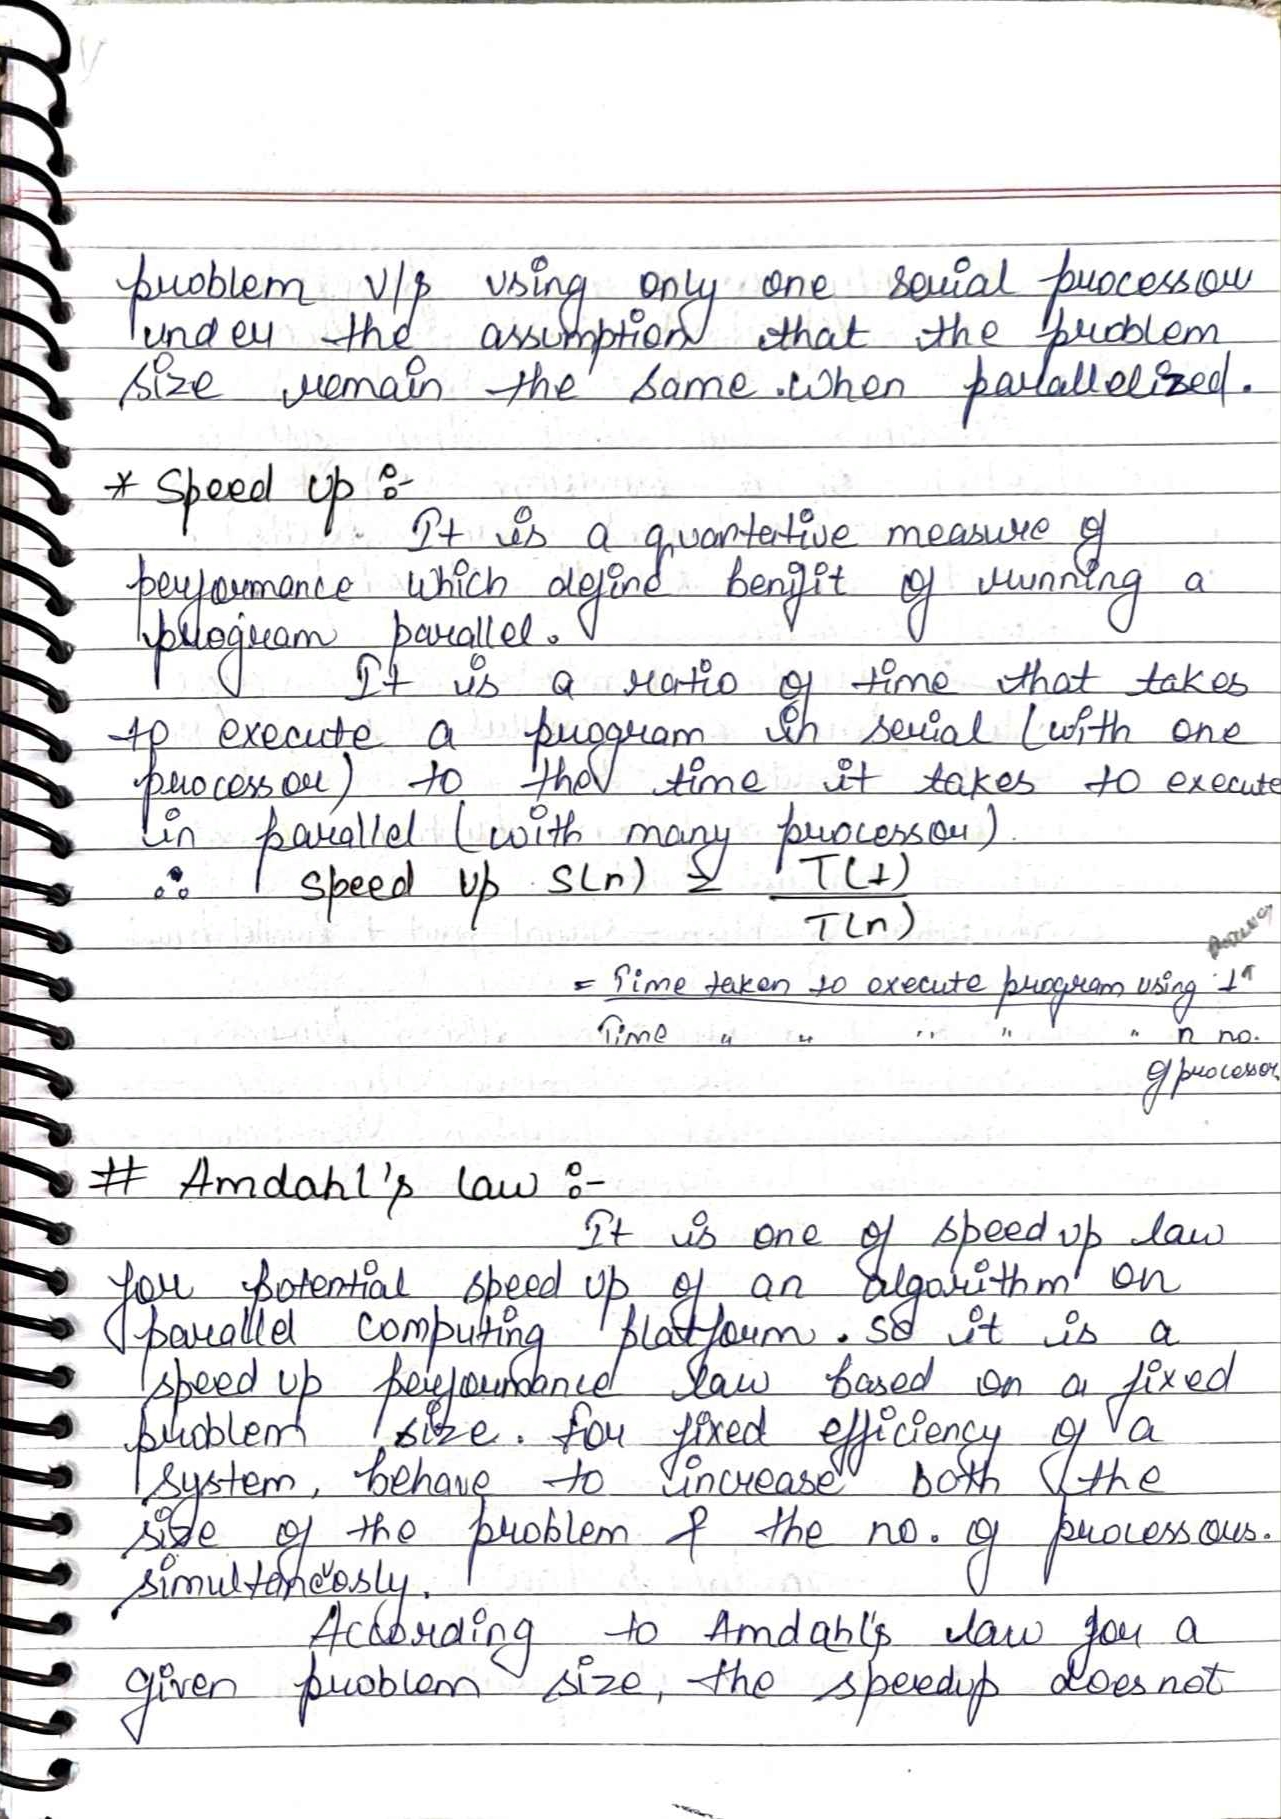 problem v/s using only one serial processor
under the assumption that the problem
size remain the same.when parallelized.
* Speed up :-
It is a quantative measure of
performance which define benifit of running a
program parallel.
It is a ratio of time that takes
to execute a program in serial (with one
processor) to the time it takes to execute
in parallel (with many processor).
∴ speed up S(n) = T(1)
T(n)
processor
= Time taken to execute program using 1
Time " " " " " n no.
of processor
# Amdahl's law :-
It is one of speed up law
for potential speed up of an algorithm on
parallel computing platform. so it is a
speed up performance law based on a fixed
problem size. for fixed efficiency of a
system, behave to increase both the
size of the problem & the no. of processors.
simultaneously.
According to Amdahl's law for a
given problem size, the speedup does not